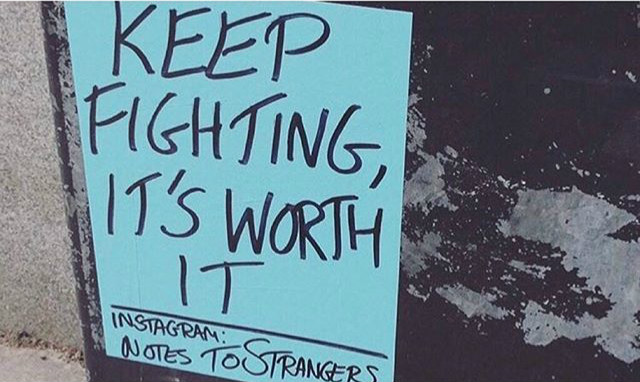 KEEP
FIGHTING,
IT'S WORTH
IT
INSTAGRAM:
NOTES TO STRANGERS